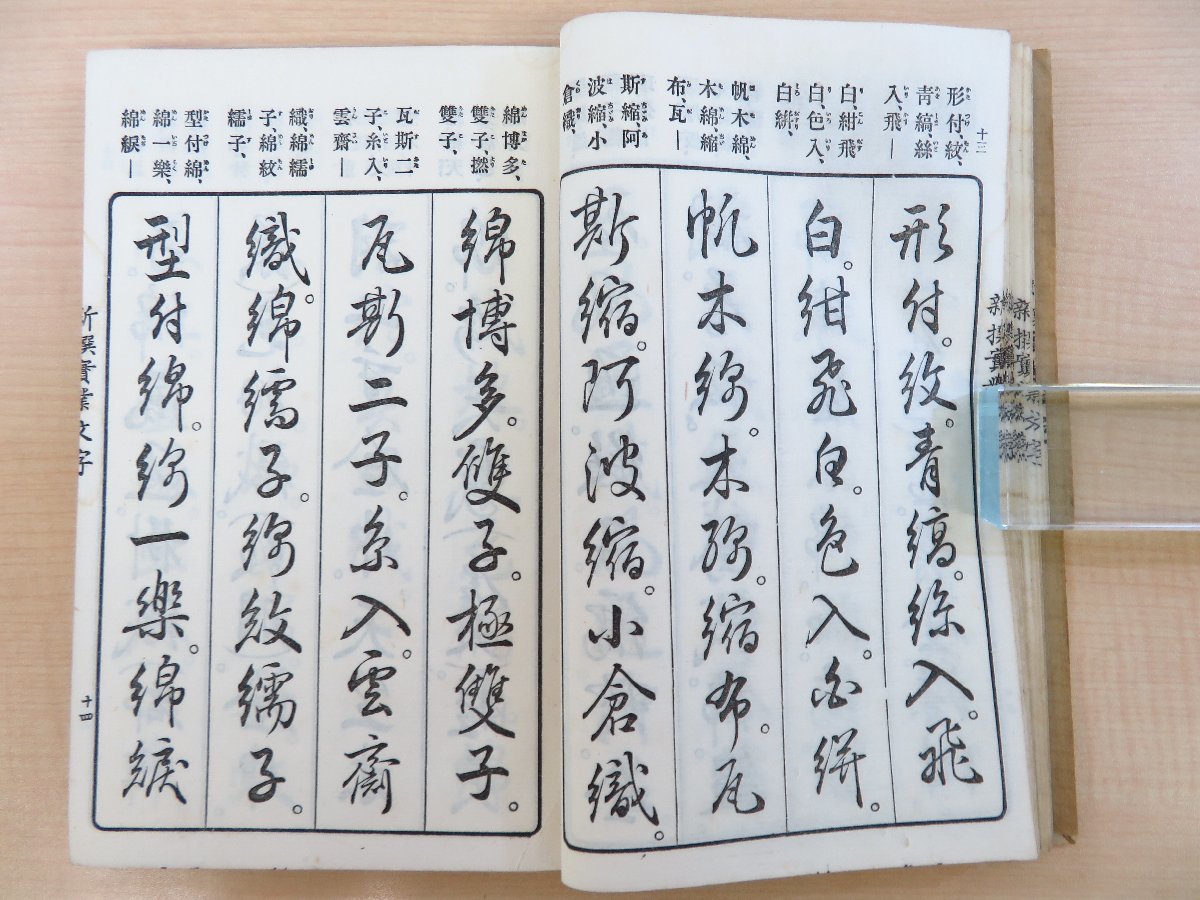 十三
形付、紋、
青縞、絲
入、飛―
白、紺飛
白、色入、
白絣、
帆木綿、
木綿、縮
布、瓦―
斯縮、阿
波縮、小
倉織、
形付。紋。青縞。絲入。飛
白。紺飛白。色入。白絣。
帆木綿。木綿。縮布。瓦
斯縮。阿波縮。小倉織。
綿博多、
雙子、撚
雙子、
瓦斯二
子、糸入、
雲齋―
織、綿繻
子、綿紋
繻子、
型付綿、
綿一樂、
綿緞―
綿博多。雙子。極雙子。
瓦斯二子。糸入雲齋
織。綿繻子。綿紋繻子。
型付綿。綿一樂。綿緞
新撰實業文字
十四